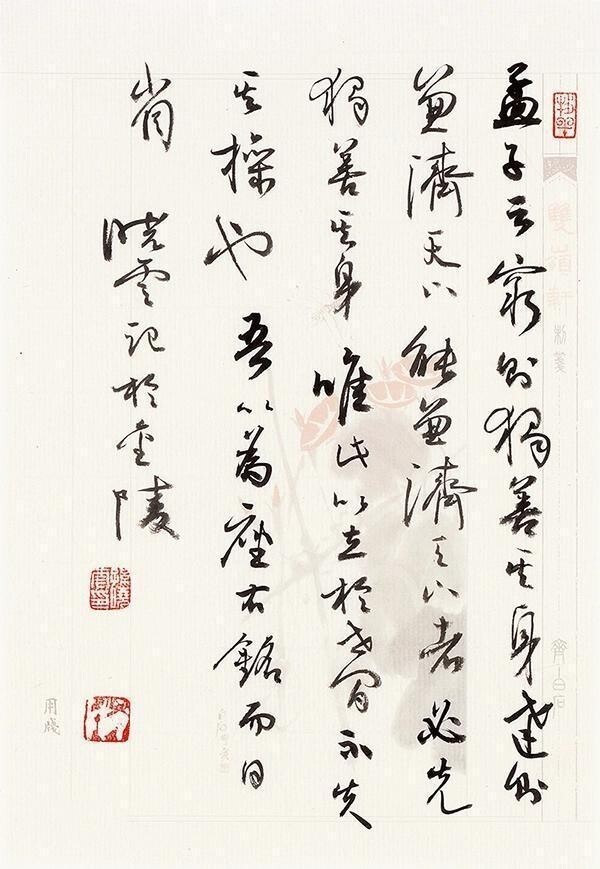 孟子云窮則獨善其身達則
兼濟天下能兼濟天下者必先
獨善其身唯此以立於世間不失
其操也吾以為座右銘而日
省
曉雲記於金陵
雙嶺軒制箋
齊白石
用箋